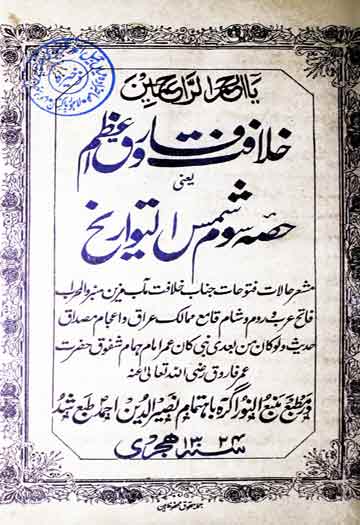 یا ارحم الراحمین
خلافت فاروق اعظم
یعنی
حصہ سوم شمس التواریخ
مشعر حالات فتوحات جناب خلافت مآب مزین منبر والمحراب
فاتح عرب و روم و شام قامع ممالک عراق و اعجام مصداق
حدیث ولوکان من بعدی نبی کان عمر امام ہمام شفوق حضرت
عمر فاروق رضی اللہ تعالیٰ عنہ
در مطبع منبع النور آگرہ باہتمام نصیر الدین احمد طبع شد
سنہ ۱۳۲۴ ہجری
جملہ حقوق محفوظ ہیں